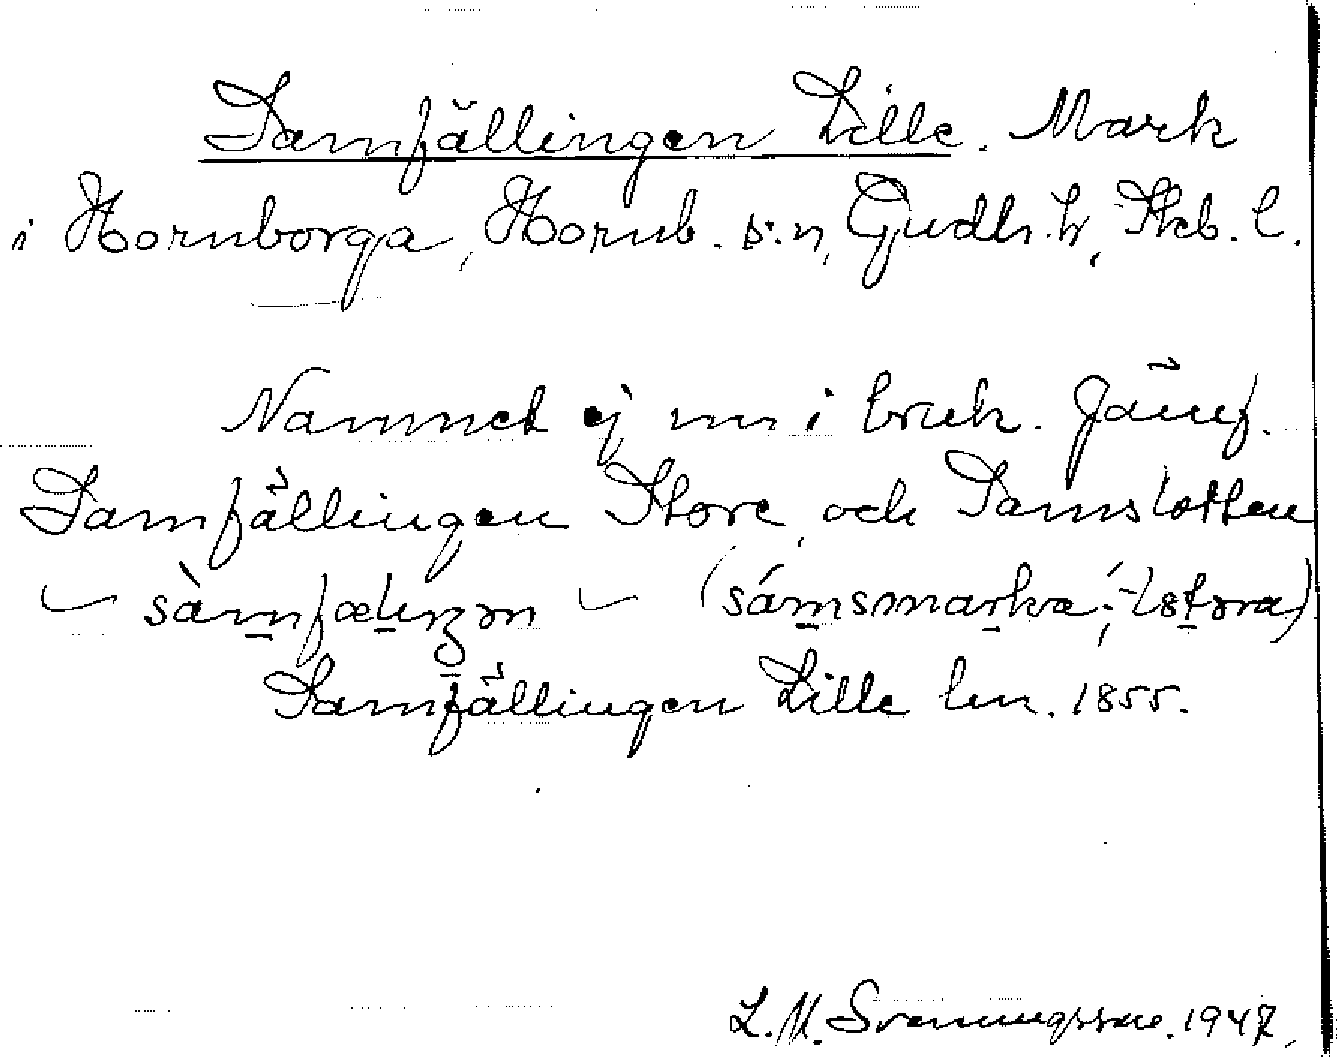 Samfällingen Lille. Mark
i Hornborga, Hornb. s:n, Gudh. h, Skb. l.
Namnet ej nu i bruk. Jämf.
Samfällingen Store och Samslotten
sàmfæliŋən (sámsmarka; -lotəna)
Samfällingen Lille lm. 1855.
L.M. Svenungsson. 1947.